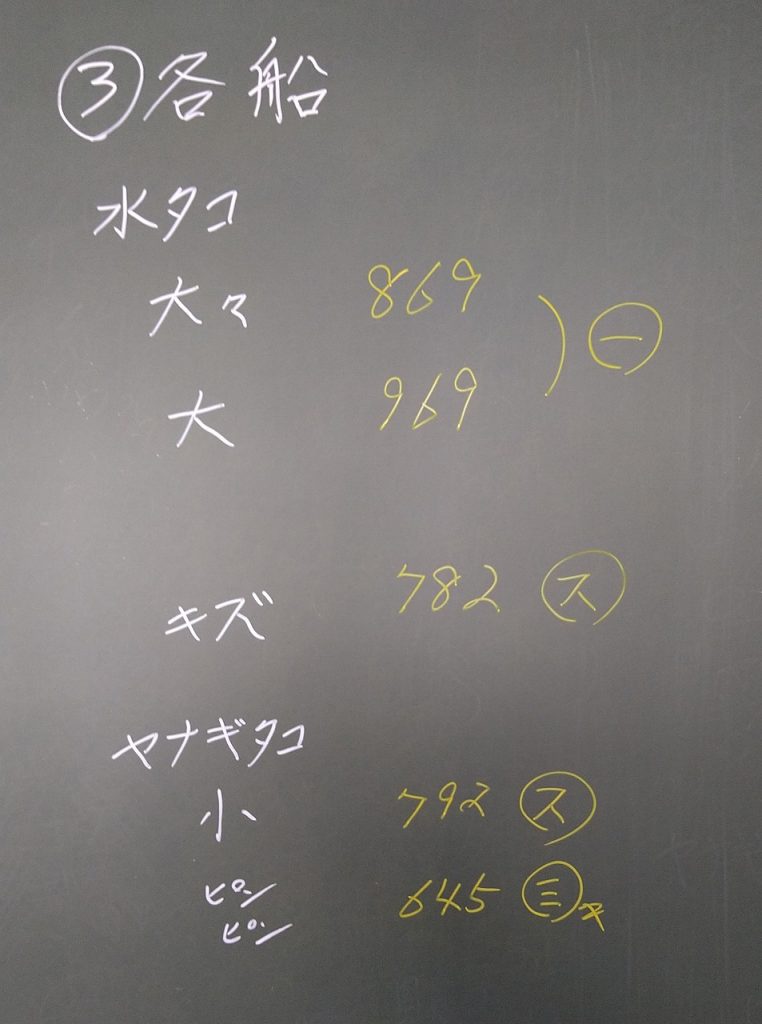 ③各船
水タコ
大々 869
大 969 ㊀
キズ 782 ㋜
ヤナギタコ
小 792 ㋜
ピン 645 ㊂
ピン